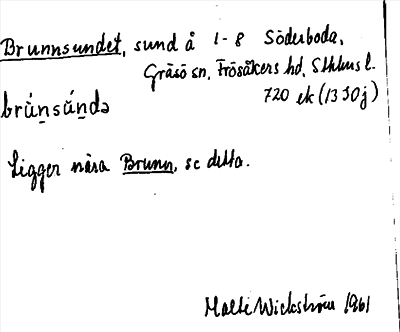 Brunnsundet, sund å 1-8 Söderboda,
Gräsö sn, Frösåkers hd, Sthlms l.
brúṉsúṉdə 720 ek (13 J0j)
Ligger nära Brunn, se detta.
Malte Wickström 1961